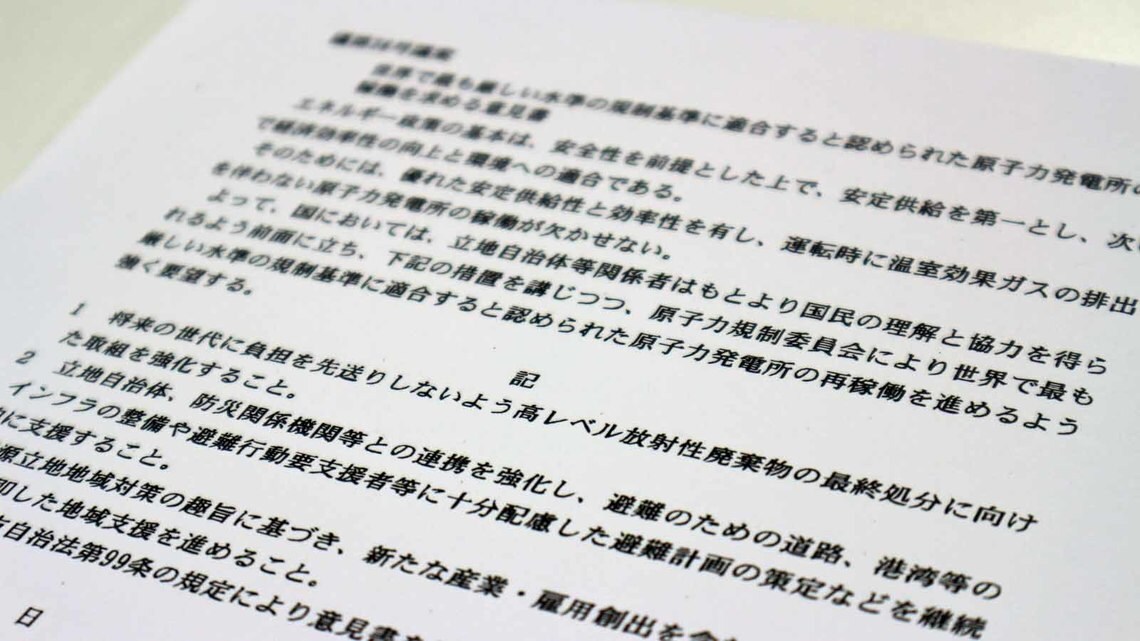 議第38号議案
世界で最も厳しい水準の規制基準に適合すると認められた原子力発電所の
稼働を求める意見書
エネルギー政策の基本は、安全性を前提とした上で、安定供給を第一とし、次い
で経済効率性の向上と環境への適合である。
そのためには、優れた安定供給性と効率性を有し、運転時に温室効果ガスの排出
を伴わない原子力発電所の稼働が欠かせない。
よって、国においては、立地自治体等関係者はもとより国民の理解と協力を得ら
れるよう前面に立ち、下記の措置を講じつつ、原子力規制委員会により世界で最も
厳しい水準の規制基準に適合すると認められた原子力発電所の再稼働を進めるよう
強く要望する。
記
1 将来の世代に負担を先送りしないよう高レベル放射性廃棄物の最終処分に向け
た取組を強化すること。
2 立地自治体、防災関係機関等との連携を強化し、避難のための道路、港湾等の
インフラの整備や避難行動要支援者等に十分配慮した避難計画の策定などを継続
に支援すること。
源立地地域対策の趣旨に基づき、新たな産業・雇用創出を含
即した地域支援を進めること。
自治法第99条の規定により意見書を
日